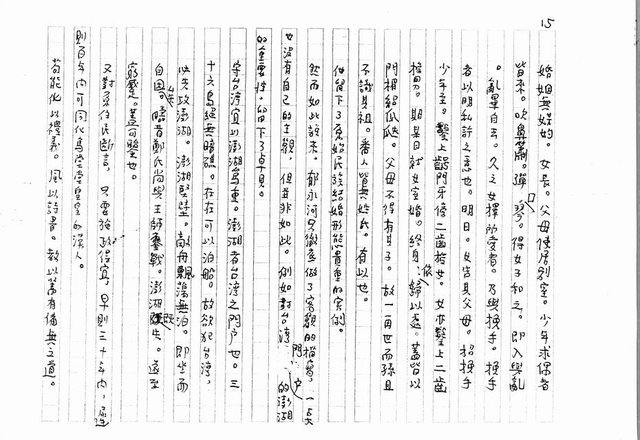 15
婚姻無媒妁。女長。父母使居別室。少年求偶者
皆來。吹鼻簫。彈口琴。得女子和之。即入與亂
。亂畢自去。久之女擇所愛者。乃與挽手。挽手
者以明私許之意也。明日。女告其父母。招挽手
少年至。鑿上齶門牙傍二齒授女。女亦鑿上二齒
授男。期某日就女室婚。終身依婦以處。蓋皆以
門楣紹瓜瓞。父母不得有其子。故一再世而孫且
不識其祖。番人皆無姓氏。有以也。
保留下了原始民族結婚形態貴重的資料。
然而如此說來。郁永河只徹底做了客觀的檔案，一點
也沒有自己的主觀，但並非如此。例如對台灣門戶的澎湖
的重要性。留下了卓見。
守台灣宜以澎湖為重。澎湖者台灣之門戶也。三
十六島絕無暗礁。在在可以泊船。故欲犯台灣，
必先攻澎湖。澎湖堅壁。敵舟飄蕩無泊。即坐而
自困。昔鄭氏尚與王師鏖戰。澎湖既失。遂至
窮蹙。蓋可鑒也。
又對原住民斷言，只要施政得宜，早則三十年內，遲
則百年內可同化為堂堂皇皇的漢人。
苟能化以禮義。風以詩書。教以蓄有備無之道。